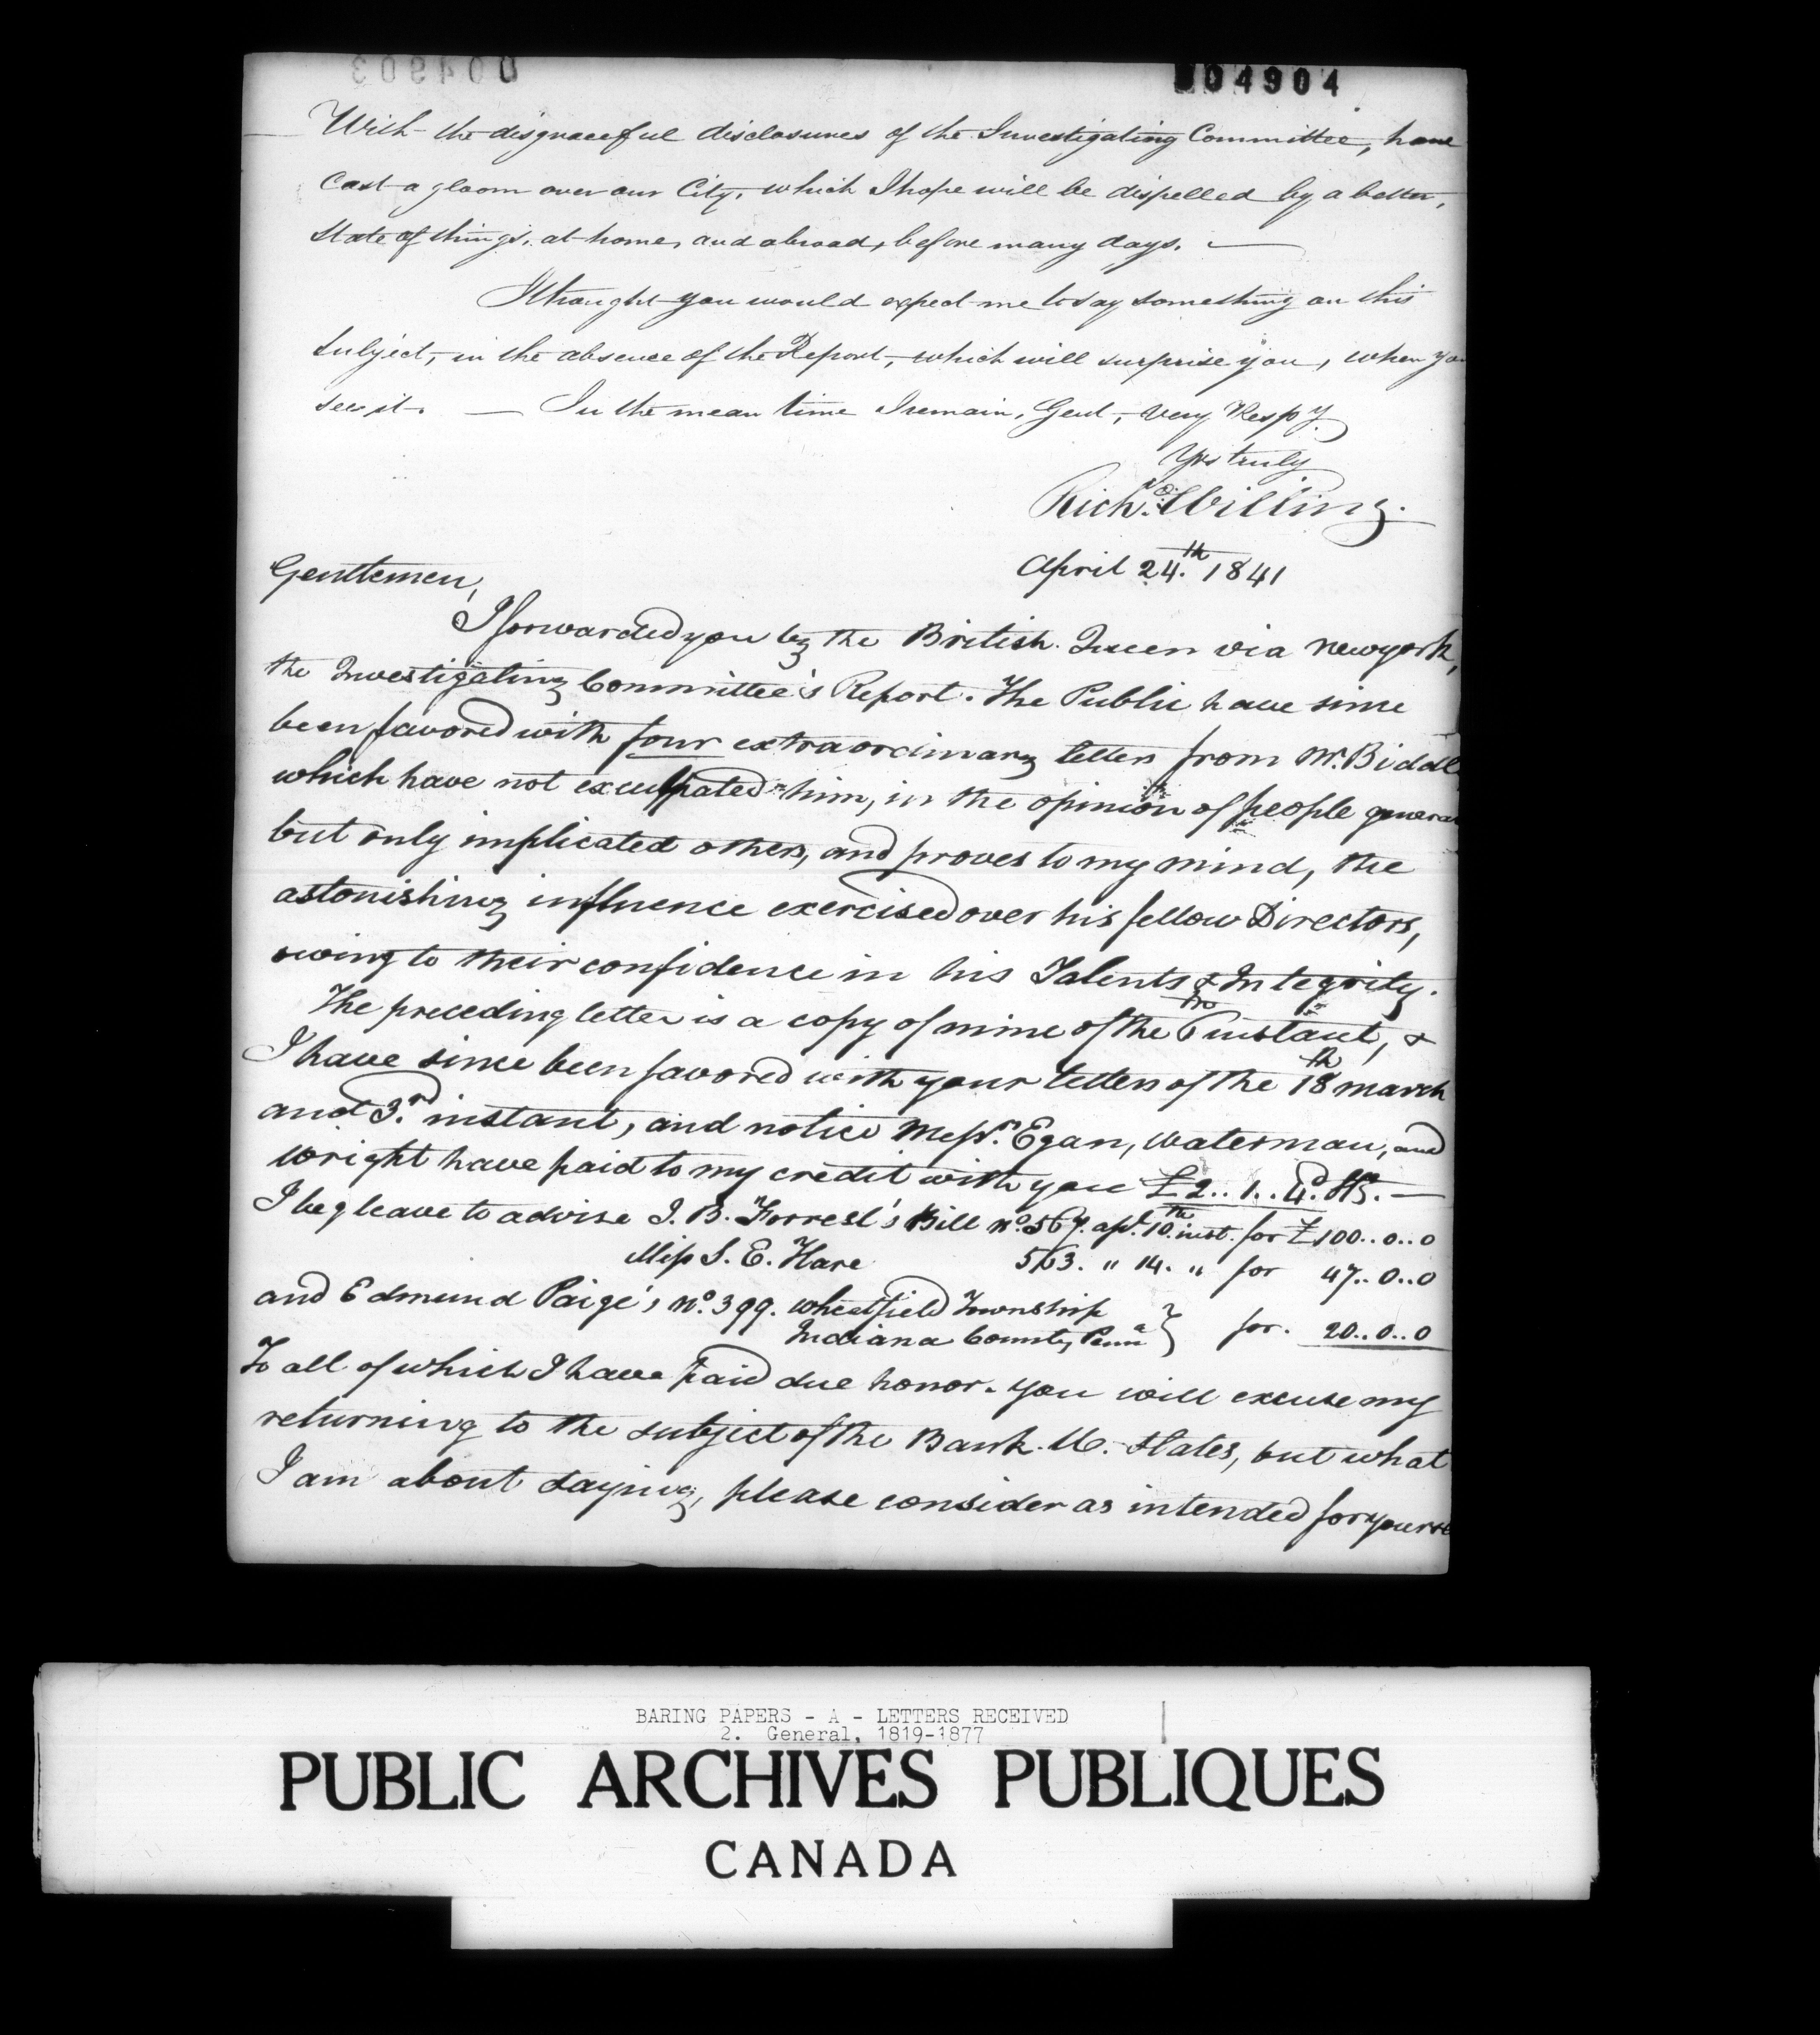 004903
004904
With the disgraceful disclosures of the Investigating Committee, have
Cast a gloom over our City, which I hope will be dispelled by a better,
State of things, at home, and abroad, before many days. —
I thought you would expect me to say something on this
subject, in the absence of the Report, which will surprise you, when you
see it. — In the mean time I remain, Gent, very Respy
Yrs truly
Richd. Willing.
April 24.th 1841
Gentlemen,
I forwarded you by the British Queen via Newyork,
the Investigating Committee's Report. The Public have since
been favored with four extraordinary letters from Mr. Biddl
which have not exculpated him, in the opinion of people genera
but only implicated others, and proves to my mind, the
astonishing influence exercised over his fellow Directors,
owing to their confidence in his Talents & Integrity.
The preceding letter is a copy of mine of the instant, &
I have since been favored with your letters of the 18th march
and 3.rd instant, and notice Messrs. Egan, Waterman, and
Wright have paid to my credit with you £2..1..4.d Stg. —
I beg leave to advise J. B. Forrest's Bill No. 567. apl. 10.th inst. for £100..0..0
Miss S. E. Hare 563. " 14. " for 47..0..0
and Edmund Paige's No. 399. Wheatfield Township
Indiana County Penna } for. 20..0..0
To all of which I have paid due honor. you will excuse my
returning to the subject of the Bank U. States, but what
I am about saying, please consider as intended for yourse
BARING PAPERS - A - LETTERS RECEIVED
2. General, 1819-1877
PUBLIC ARCHIVES PUBLIQUES
CANADA